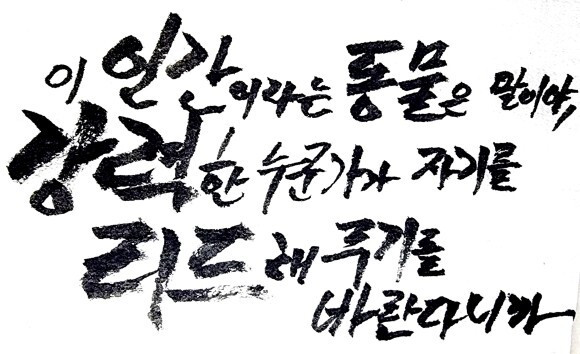 이 인간이라는 동물은 말이야,
강력한 누군가가 자기를
리드해 주기를
바란다니까